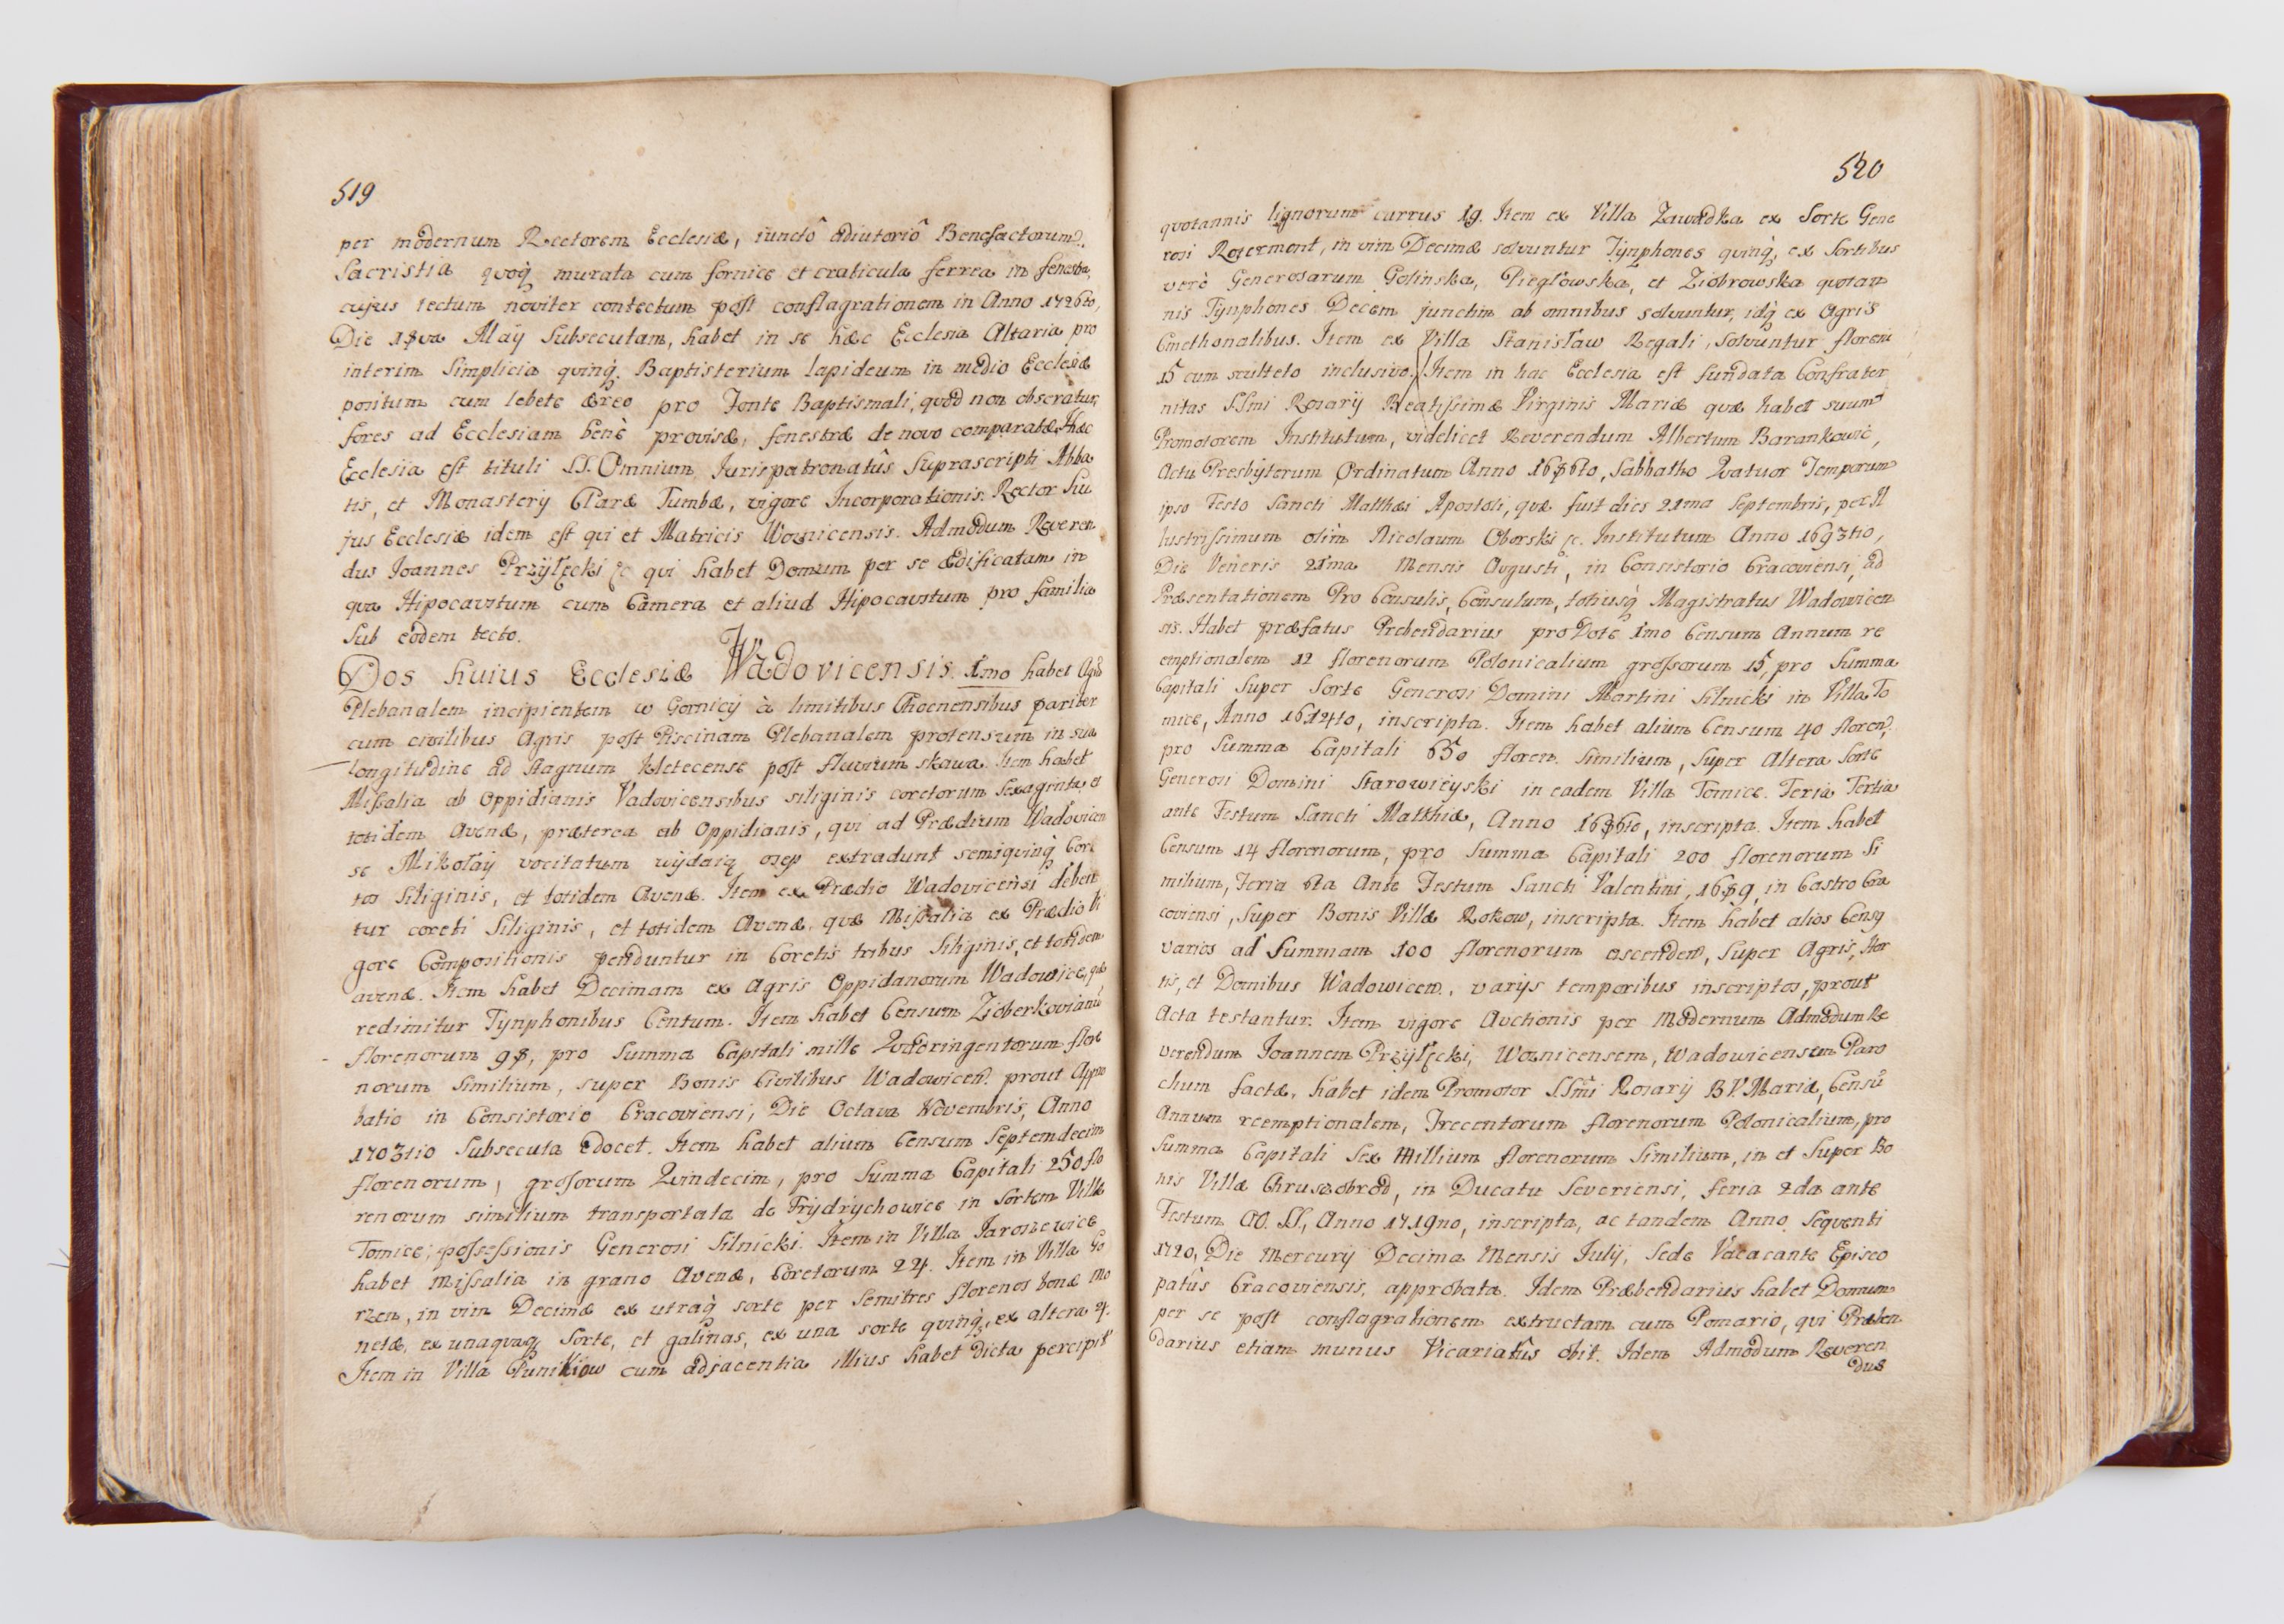 519
per modernum Rectorem Ecclesiæ, iunctô adiutoriô Benefactorum.
Sacristia quoq; murata cum fornice et craticula ferrea in fenestra,
cujus tectum noviter contectum post conflagrationem in Anno 1726to,
Die 18va Maÿ subsecutam, habet in se hæc Ecclesia Altaria pro
interim simplicia quinq; Baptisterium lapideum in medio Ecclesiæ
positum cum lebete æreo pro Fonte Baptismali, quod non obseratur,
fores ad Ecclesiam benè provisæ, fenestræ de novo comparatæ. Hæc
Ecclesia est tituli SS. Omnium Jurispatronatûs suprascripti Abba
tis, et Monasterÿ Claræ Tumbæ, vigore Incorporationis. Rector hu
jus Ecclesiæ idem est qui et Matricis Woznicensis. Admodum Reveren
dus Joannes Przÿłęcki &c qui habet Domum per se ædificatam in
qva Hipocavstum cum Camera et aliud Hipocavstum pro familia
sub eodem tecto.
Dos huius Ecclesiæ Wadovicensis. 1mo habet Agrū
Plebanalem incipientem w Gornicÿ à limitibus Choznensibus pariter
cum civilibus Agris post Piscinam Plebanalem protensum in sua
longitudine ad stagnum kletecense post fluvium skawa. Item habet
Missalia ab Oppidanis Vadovicensibus siliginis coretorum sexaginta et
totidem Avenæ, præterea ab Oppidianis, qui ad Prædium Wadovicen
se Mikołaÿ vocitatum wÿdaią osep extradunt semiquinq; Core
tos siliginis, et totidem Avenæ. Item ex Prædio Wadovicensi deben
tur coreti siliginis, et totidem Avenæ, quæ Missalia ex Prædio vi
gore Compositionis penduntur in Coretis tribus siliginis, et totidem
avenæ. Item habet Decimam ex Agris Oppidanorum Wadowice, quæ
redimitur Tynphonibus Centum. Item habet Censum Zieberkovianū
florenorum 98, pro summa Capitali mille Quadringentorum flore
norum similium, super Bonis Civilibus Wadowicen. prout Appro
batio in Consistorio Cracoviensi, Die Octava Novembris, Anno
1703tio subsecuta edocet. Item habet alium Censum septemdecim
florenorum, grossorum Quindecim, pro summa Capitali 250 flo
renorum similium transportata de Frÿdrÿchowice in sortem Villæ
Tomice, possessionis Generosi Silnicki. Item in Villa Jaroszewice
habet Missalia in grano Avenæ, Coretorum 24. Item in Villa Go
rzen, in vim Decimæ ex utraq; sorte per semitres florenos bonæ mo
netæ, ex unaquaq; sorte, et galinas, ex una sorte quinq;, ex altera 4.
Item in Villa Punikiow cum adjacentia illius habet dicta percipit
520
quotannis lignorum currus 19. Item ex Villa Zawadka ex sorte Gene
rosi Rozermont, in vim Decimæ solvuntur Tÿnphones quinq;, ex sortibus
verò Generosarum Golinska, Piegłowska, et Ziobrowska quotan
nis Tÿnphones Decem junctim ab omnibus solvuntur, idq; ex Agris
Cmethonalibus. Item ex Villa Stanisław Regali, solvuntur floreni
15 cum sculteto inclusivo. Item in hac Ecclesia est fundata Confrater
nitas SSmi Rosarÿ Beatissimæ Virginis Mariæ quæ habet suum
Promotorem Institutum, videlicet Reverendum Albertum Barankowic,
Actu Presbÿterum Ordinatum Anno 1686to, Sabbatho Quatuor Temporum
ipso Festo Sancti Matthæi Apostoli, quæ fuit dies 21ma Septembris, per Il
lustrissimum olim Nicolaum Oborski &c. Institutum Anno 1693tio,
Die Veneris 21ma Mensis Augusti, in Consistorio Cracoviensi, ad
Præsentationem Pro Consulis, Consulum, totiusq; Magistratus Wadowicen
sis. Habet præfatus Prebendarius pro Dote 1mo Censum Annum re
emptionalem 12 florenorum Polonicalium grossorum 15, pro summa
Capitali super sorte Generosi Domini Martini Silnicki in Villa To
mice, Anno 1612to, inscripta. Item habet alium Censum 40 floren.
pro summa Capitali 650 floren. similium, super Altera sorte
Generosi Domini Starowieÿski in eadem Villa Tomice. Feria Tertia
ante Festum Sancti Matthiæ, Anno 1686to, inscripta. Item habet
Censum 14 florenorum, pro summa Capitali 200 florenorum si
milium, Feria 6ta Ante Festum Sancti Valentini, 1689, in Castro Cra
coviensi, super Bonis Villæ Rokow, inscripta. Item habet alios Censq
varios ad summam 100 florenorum ascenden, super Agris, Hor
tis, et Domibus Wadowicen., varÿs temporibus inscriptos, prout
Acta testantur. Item vigore Auctionis per Modernum Admodum Re
verendum Joannem Przÿłęcki, Woznicensem, Wadowicensem Paro
chum factæ, habet idem Promotor SSmi Rosarÿ B.V. Mariæ, Censū
Annum reemptionalem, Trecentorum florenorum Polonicalium, pro
summa Capitali sex Millium florenorum similium, in et super Bo
nis Villæ Chruszobrod, in Ducatu Severiensi, feria 2da ante
Festum OO. SS, Anno 1719no, inscripta, ac tandem Anno sequenti
1720, Die Mercurÿ Decima Mensis Julÿ, Sede Vacacante Episco
patûs Cracoviensis, approbata. Idem Præbendarius habet Domum
per se post conflagrationem extructam cum Pomario, qui Præben
darius etiam munus Vicariatûs obit. Idem Admodum Reveren
dus